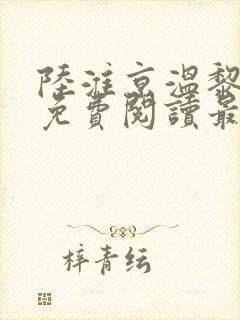 陸淮京溫黎
免費閱讀最
梓青纭